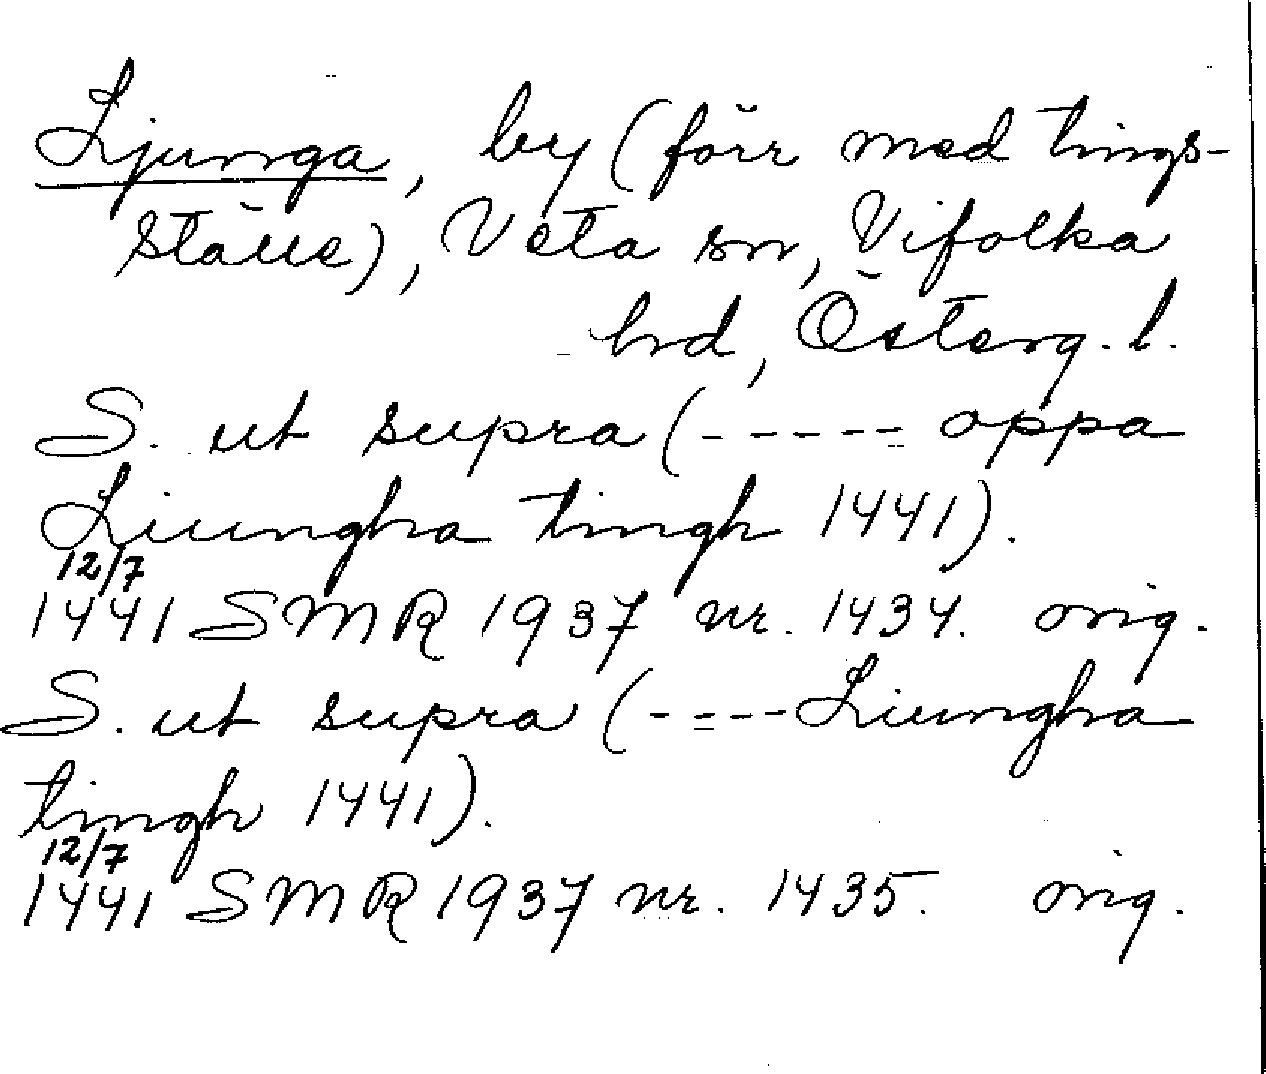 Ljunga, by (förr med tings-
ställe), Veta sn, Vifolka
hrd, Österg. l.
S. ut supra (----- oppa
Liungha tingh 1441).
12/7
1441 SMR 1937 nr. 1434. orig.
S. ut supra (---- Liungha
tingh 1441).
12/7
1441 SMR 1937 nr. 1435. orig.